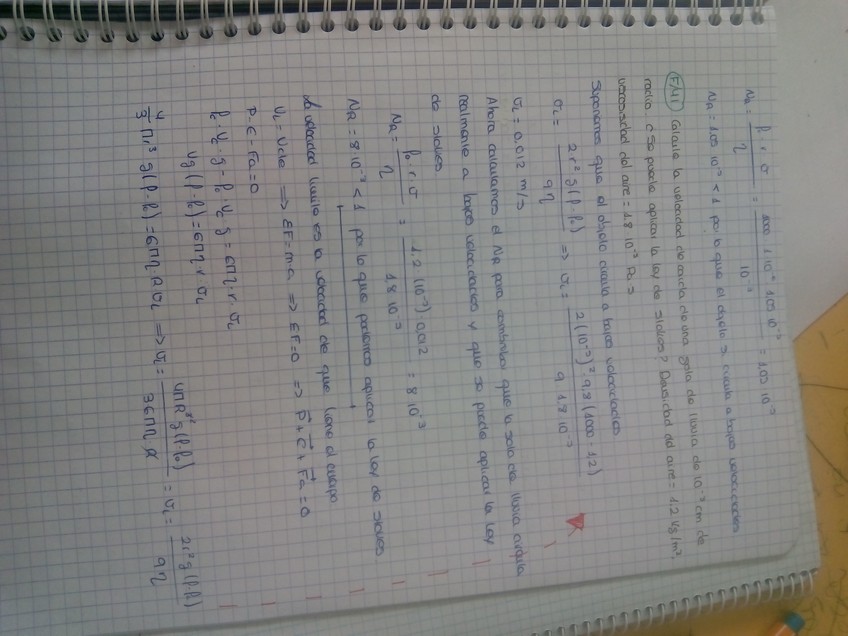 NR = ρ₀ · r · σ / η = 1000 · 1 · 10⁻⁶ · 1.03 10⁻³ / 10⁻³ = 1.03 10⁻³
NR = 1.03 10⁻³ < 1 por lo que el objeto si circula a bajas velocidades
E/41 Calcula la velocidad de caída de una gota de lluvia de 10⁻³ cm de
radio. ¿Se puede aplicar la ley de Stokes? Densidad del aire = 1.2 Kg/m³.
viscosidad del aire = 1.8 10⁻⁵ Pa·s
Suponemos que el objeto circula a bajas velocidades
σL = 2 r² g (ρ - ρ₀) / 9 η => σL = 2 (10⁻⁵)² · 9.8 (1000 - 1.2) / 9 1.8 10⁻⁵
σL = 0.012 m/s
Ahora calculamos el NR para comprobar que la gota de lluvia circula
realmente a bajas velocidades y que se puede aplicar la ley
de Stokes
NR = ρ₀ · r · σ / η = 1.2 (10⁻⁵) 0.012 / 1.8 10⁻⁵ = 8 10⁻³
NR = 8 10⁻³ < 1 por lo que podemos aplicar la ley de Stokes.
La velocidad límite es la velocidad de que lleva el cuerpo
VL = Vcte => ΣF = m·a => ΣF = 0 => P + E + Fa = 0
P - E - Fa = 0
ρc Vc · g - ρ₀ Vc g = 6πη · r · σL
Vg (ρ - ρ₀) = 6πη · r σL
4/3 πr³ g (ρ - ρ₀) = 6πη · R σL => σL = 4πR³² g (ρ - ρ₀) / 3 6πη R = σL = 2r² g (ρ - ρ₀) / 9η